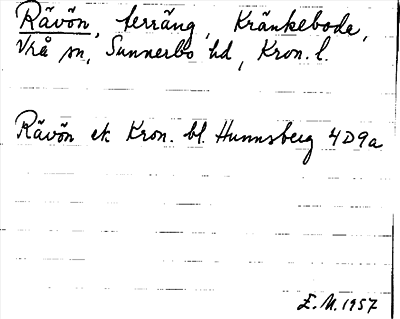 Rävön, terräng, Kränkeboda,
Vrå sn, Sunnerbo hd, Kron. l.
Rävön ek Kron. bl. Hunnsberg 4D9a
E.M. 1957